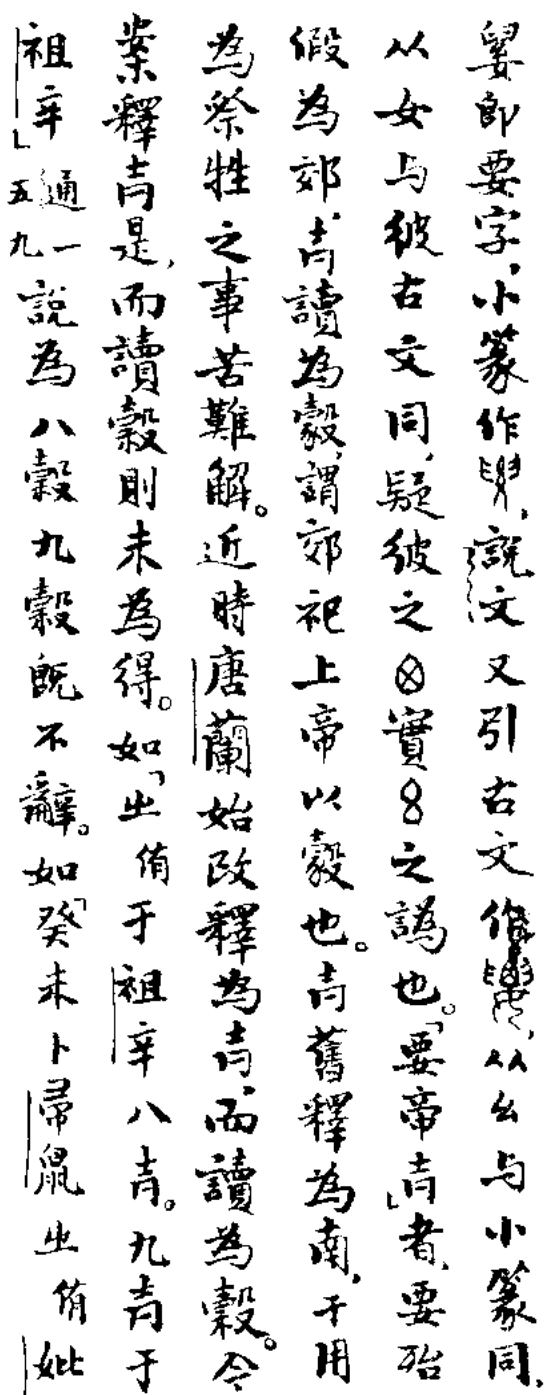 即要字,小篆作,說文又引古文作,从幺与小篆同,
从女与彼古文同,疑彼之⊗實8之譌也。「要帝」者,要殆
假為郊,讀為豰,謂郊祀上帝以豰也。舊釋為南,于用
為祭牲之事苦難解。近時唐蘭始改釋為,而讀為穀。今
案釋是,而讀穀則未為得。如「㞢侑于祖辛八。九于
祖辛」通一五九說為八穀九穀既不辭。如「癸未卜帚鼠㞢侑妣